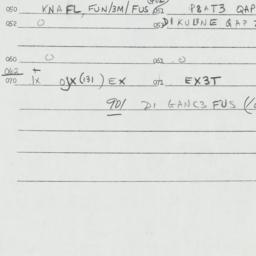 050 KNAFL, FUN/3M/FUS 051 P8AT3 QAP
052 0 053 DIKULUNE QAP
060 0 061 0
062 +
070 1x OJX(131) EX 071 EX3T
901 DI GANC3 FUS